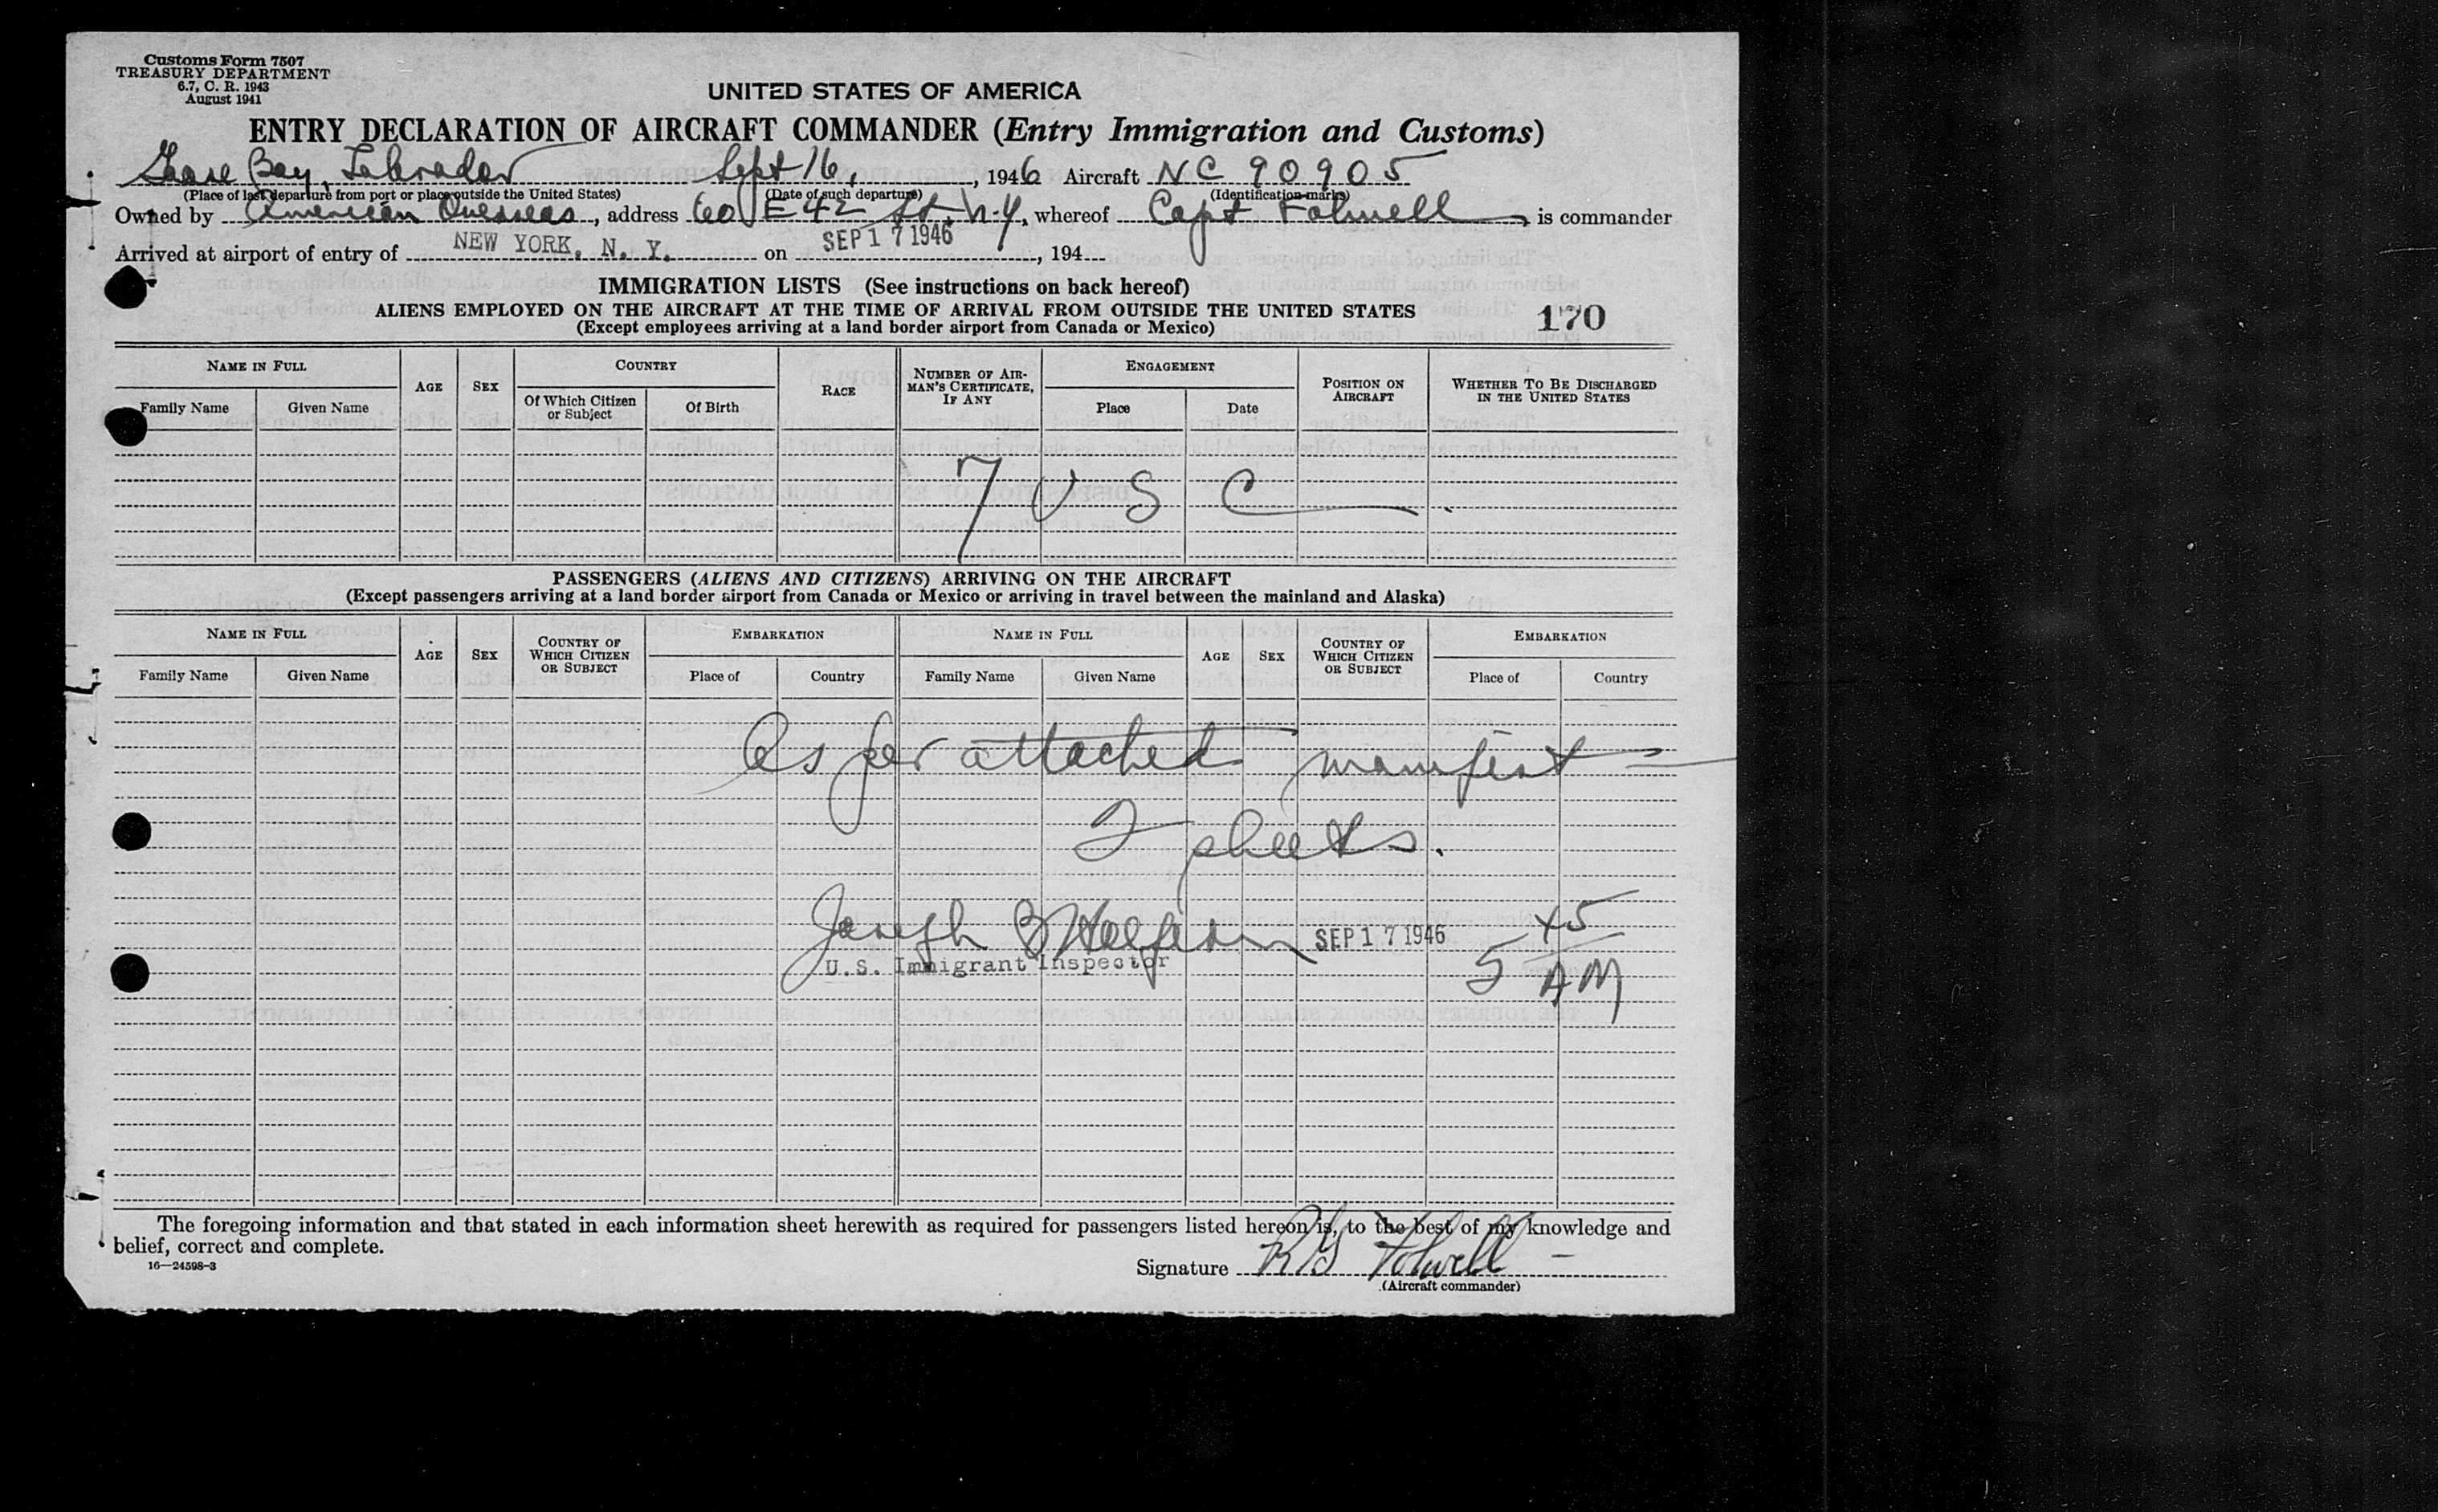 Customs Form 7507
TREASURY DEPARTMENT
6.7, C. R. 1943
August 1941
UNITED STATES OF AMERICA
ENTRY DECLARATION OF AIRCRAFT COMMANDER (Entry Immigration and Customs)
Goose Bay, Labrador Sept 16, , 1946 Aircraft NC 90905
(Place of last departure from port or place outside the United States) (Date of such departure) (Identification marks)
Owned by American Overseas, address 60 E 42 St. N.Y., whereof Capt Folwell, is commander
Arrived at airport of entry of NEW YORK, N. Y. on SEP 17 1946, 194
IMMIGRATION LISTS (See instructions on back hereof)
ALIENS EMPLOYED ON THE AIRCRAFT AT THE TIME OF ARRIVAL FROM OUTSIDE THE UNITED STATES
(Except employees arriving at a land border airport from Canada or Mexico)
170
NAME IN FULL AGE SEX COUNTRY RACE NUMBER OF AIRMAN'S CERTIFICATE, IF ANY ENGAGEMENT POSITION ON AIRCRAFT WHETHER TO BE DISCHARGED IN THE UNITED STATES
Family Name Given Name Of Which Citizen or Subject Of Birth Place Date
7 U S C
PASSENGERS (ALIENS AND CITIZENS) ARRIVING ON THE AIRCRAFT
(Except passengers arriving at a land border airport from Canada or Mexico or arriving in travel between the mainland and Alaska)
NAME IN FULL AGE SEX COUNTRY OF WHICH CITIZEN OR SUBJECT EMBARKATION NAME IN FULL AGE SEX COUNTRY OF WHICH CITIZEN OR SUBJECT EMBARKATION
Family Name Given Name Place of Country Family Name Given Name Place of Country
As per attached manifest
2 sheets.
Joseph B SEP 17 1946 5 45 AM
U.S. Immigrant Inspector
The foregoing information and that stated in each information sheet herewith as required for passengers listed hereon is, to the best of my knowledge and
belief, correct and complete.
16—24598-3
Signature R G Folwell
(Aircraft commander)